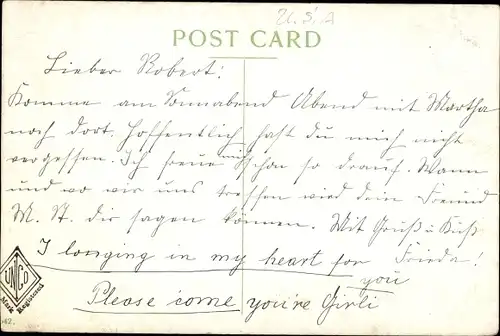 U.S.A
POST CARD
Lieber Robert!
Komme am Sonnabend Abend mit Martha
nach dort. Hoffentlich hast du mich nicht
vergessen. Ich freue mich schon so drauf. Wann
und wo wir uns treffen wird dein Freund
M. St. dir sagen können. Mit Gruß u Kuß
I longing in my heart for Frieda!
you
Please come you're Girli
UNCO
Mark Registered